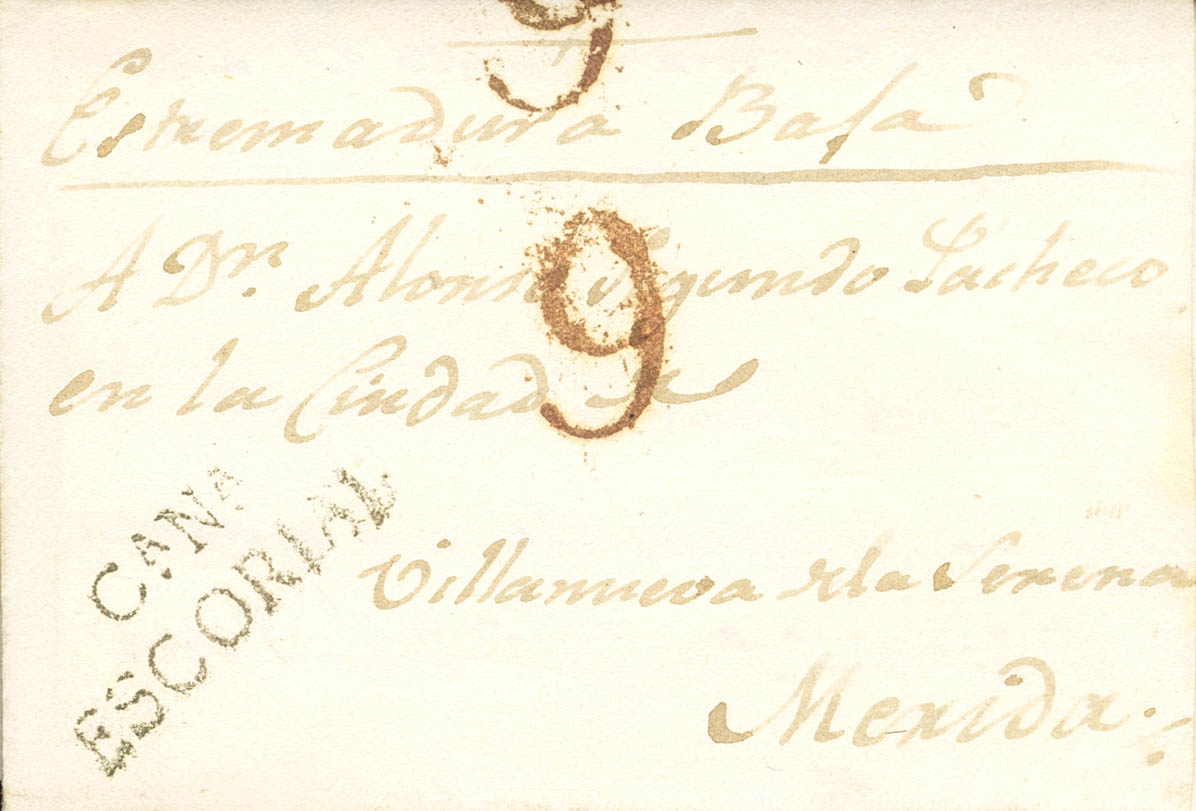 9
Estremadura Baja
A Dn. Alonso Segundo Pacheco
9
en la Ciudad de
CANA
ESCORIAL
Villanueva de la Serena
Merida.